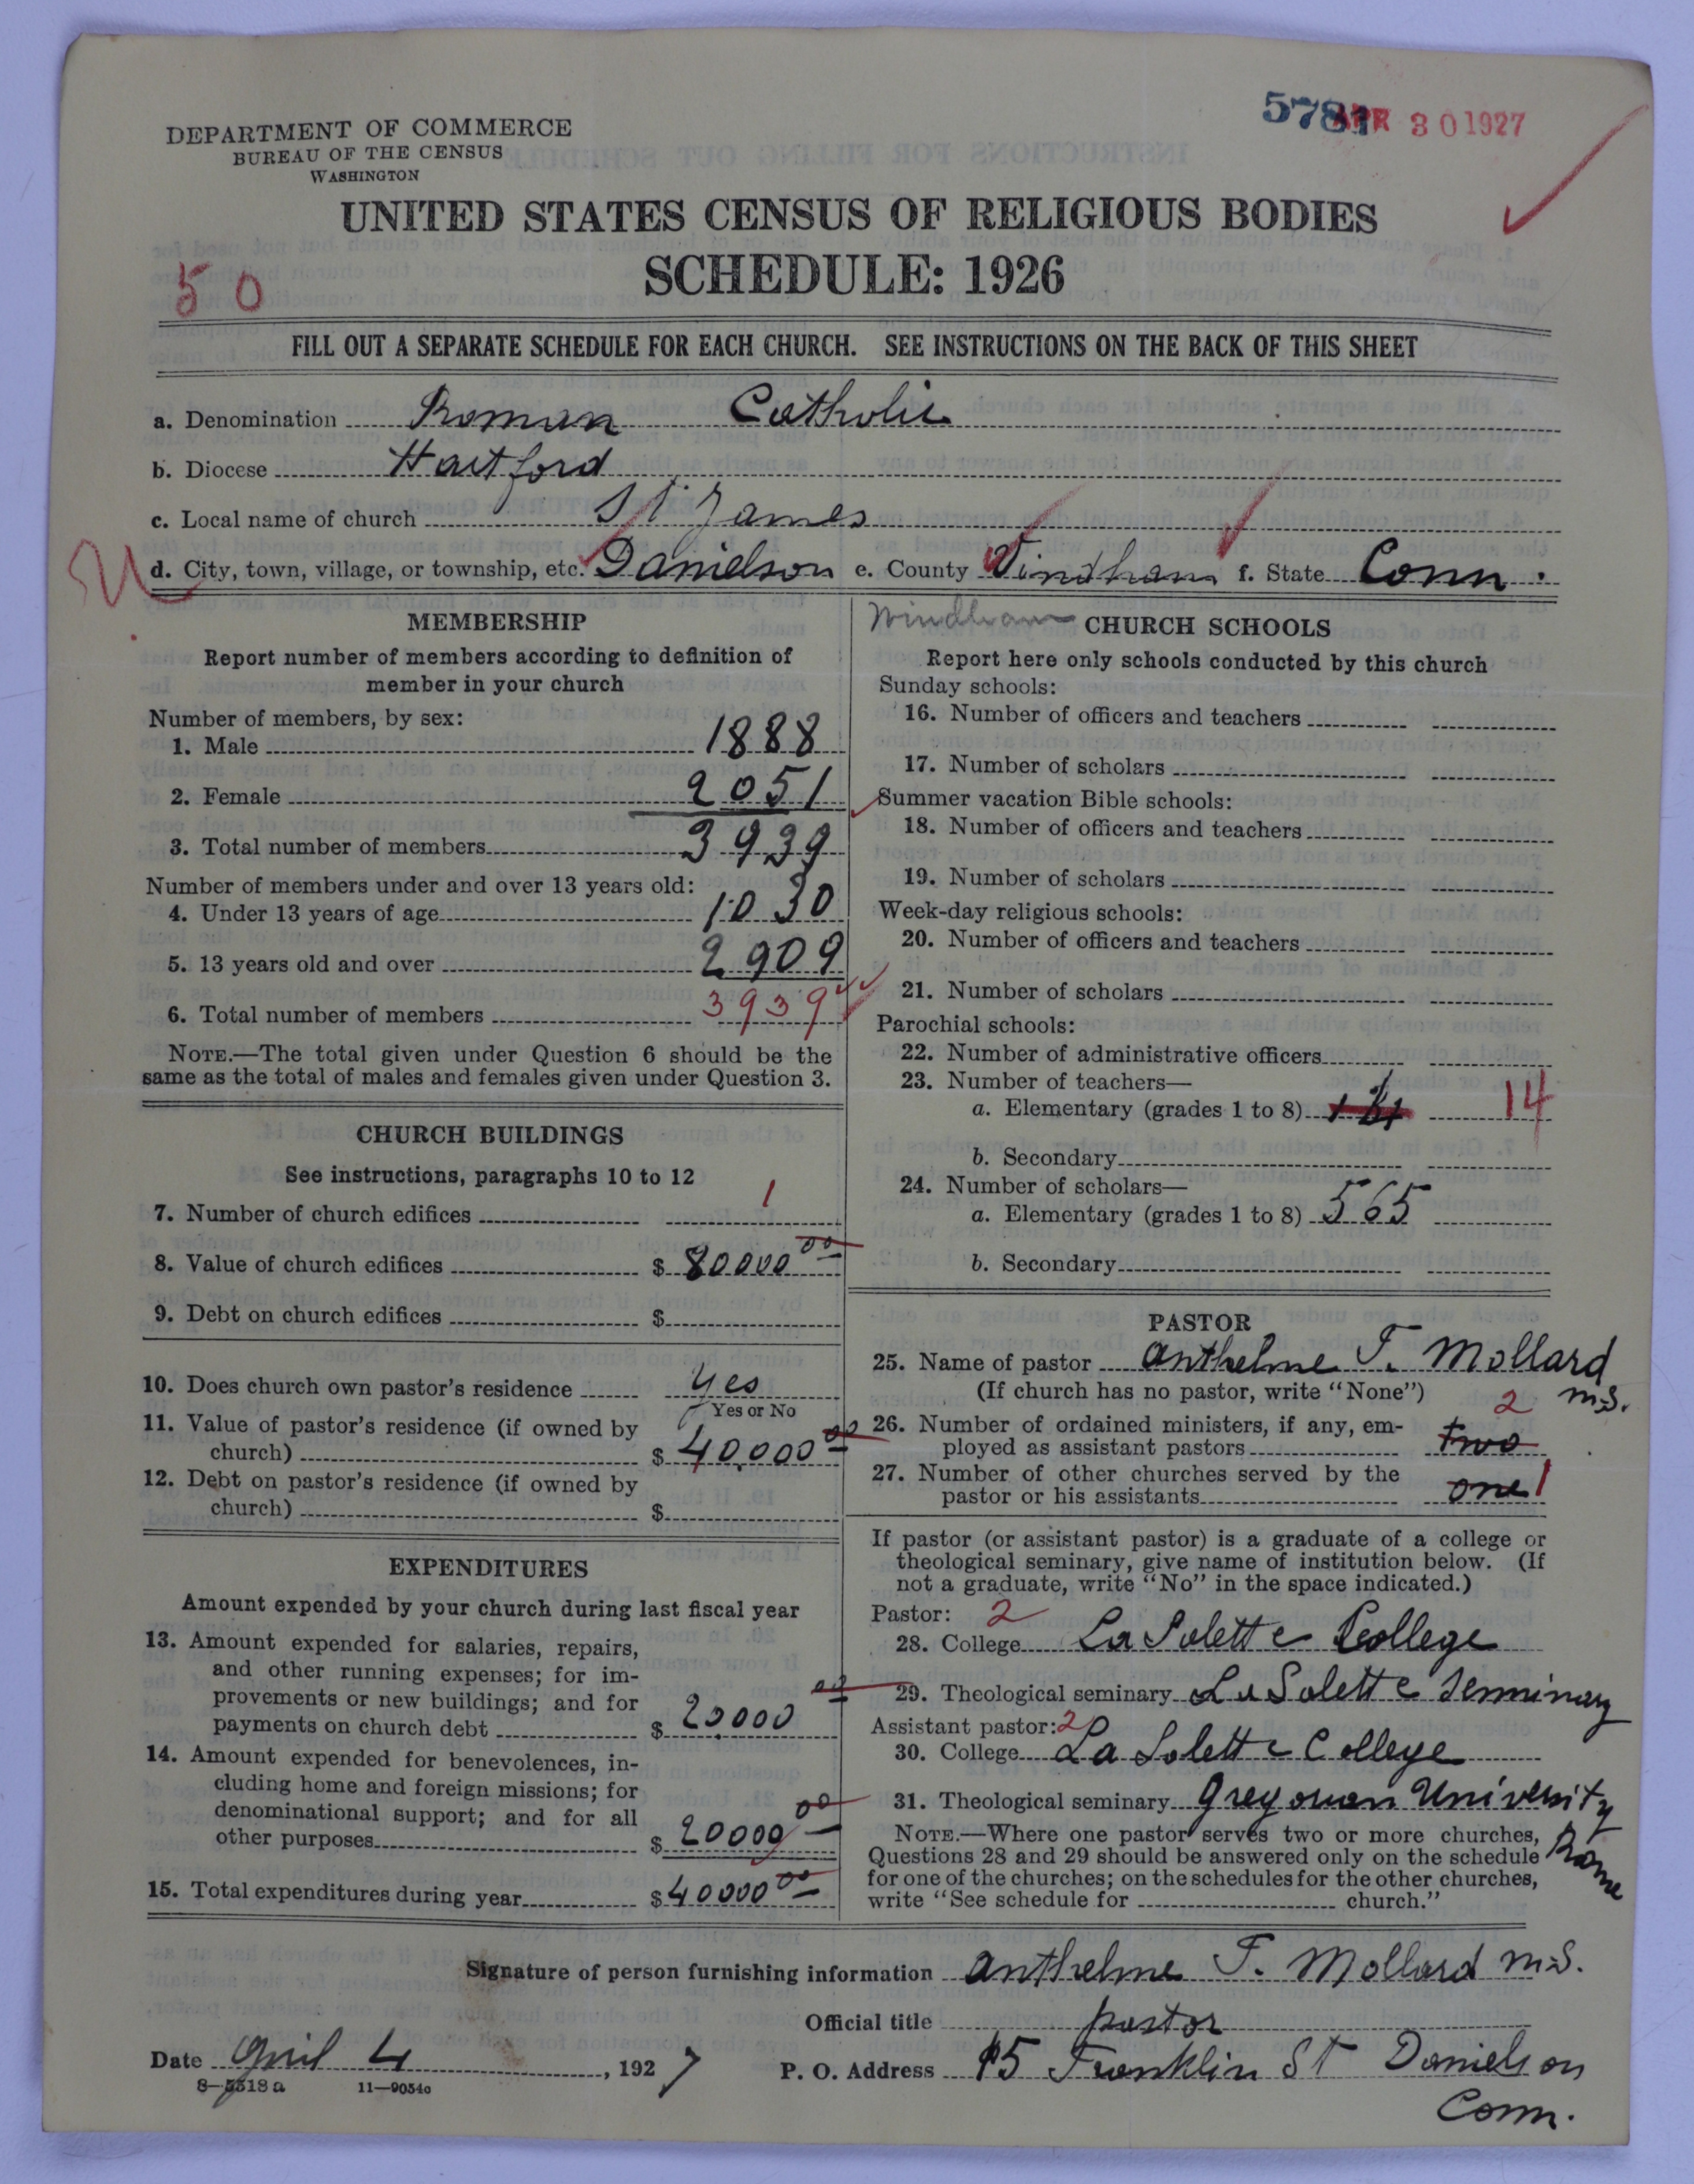 5781 APR 30 1927
DEPARTMENT OF COMMERCE
BUREAU OF THE CENSUS
WASHINGTON
UNITED STATES CENSUS OF RELIGIOUS BODIES
SCHEDULE: 1926
50
FILL OUT A SEPARATE SCHEDULE FOR EACH CHURCH. SEE INSTRUCTIONS ON THE BACK OF THIS SHEET
a. Denomination Roman Catholic
b. Diocese Hartford
c. Local name of church St James
d. City, town, village, or township, etc. Danielson e. County Windham f. State Conn.
MEMBERSHIP
Report number of members according to definition of
member in your church
Number of members, by sex:
1. Male 1888
2. Female 2051
3. Total number of members 3939
Number of members under and over 13 years old:
4. Under 13 years of age 1030
5. 13 years old and over 2909
6. Total number of members 3939
NOTE.—The total given under Question 6 should be the
same as the total of males and females given under Question 3.
CHURCH BUILDINGS
See instructions, paragraphs 10 to 12
7. Number of church edifices 1
8. Value of church edifices $ 80000 00
9. Debt on church edifices $
10. Does church own pastor's residence yes
Yes or No
11. Value of pastor's residence (if owned by
church) $ 40,000 00
12. Debt on pastor's residence (if owned by
church) $
EXPENDITURES
Amount expended by your church during last fiscal year
13. Amount expended for salaries, repairs,
and other running expenses; for im-
provements or new buildings; and for
payments on church debt $ 20000 00
14. Amount expended for benevolences, in-
cluding home and foreign missions; for
denominational support; and for all
other purposes $ 20000 00
15. Total expenditures during year $ 40000 00
Windham
CHURCH SCHOOLS
Report here only schools conducted by this church
Sunday schools:
16. Number of officers and teachers
17. Number of scholars
Summer vacation Bible schools:
18. Number of officers and teachers
19. Number of scholars
Week-day religious schools:
20. Number of officers and teachers
21. Number of scholars
Parochial schools:
22. Number of administrative officers
23. Number of teachers—
a. Elementary (grades 1 to 8) 14
b. Secondary
24. Number of scholars—
a. Elementary (grades 1 to 8) 565
b. Secondary
PASTOR
25. Name of pastor Anthelme T. Mollard
(If church has no pastor, write "None") M.S.
2
26. Number of ordained ministers, if any, em-
ployed as assistant pastors two
27. Number of other churches served by the
pastor or his assistants one 1
If pastor (or assistant pastor) is a graduate of a college or
theological seminary, give name of institution below. (If
not a graduate, write "No" in the space indicated.)
Pastor: 2
28. College La Salette College
29. Theological seminary La Salette Seminary
Assistant pastor: 2
30. College La Salette College
31. Theological seminary Gregorian University
Rome
NOTE.—Where one pastor serves two or more churches,
Questions 28 and 29 should be answered only on the schedule
for one of the churches; on the schedules for the other churches,
write "See schedule for church."
Signature of person furnishing information Anthelme T. Mollard M.S.
Official title pastor
Date April 4, 1927 P. O. Address 15 Franklin St Danielson
Conn.
8—5318a 11—9054c